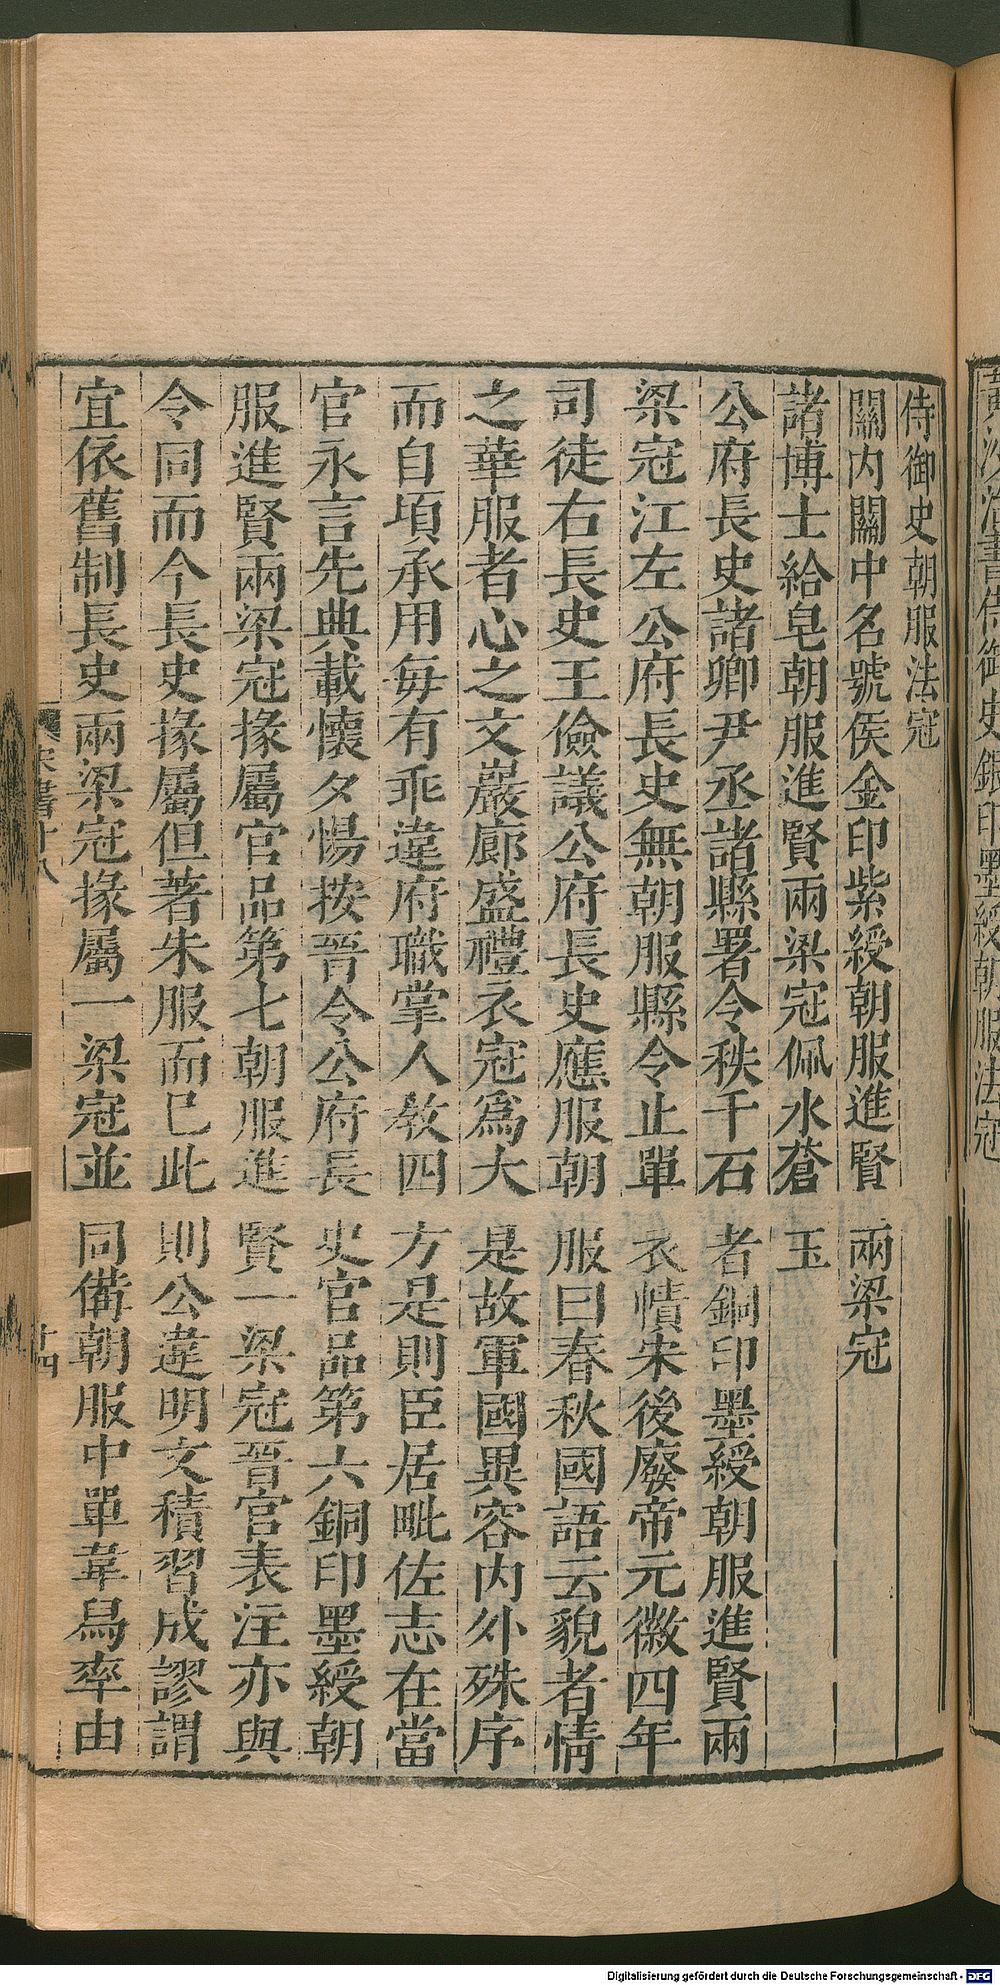 黃沙治書侍御史銀印墨綬朝服法冠
侍御史朝服法冠
關内關中名號侯金印紫綬朝服進賢兩梁冠
諸博士給皂朝服進賢兩梁冠佩水蒼玉
公府長史諸卿尹丞諸縣署令秩千石者銅印墨綬朝服進賢兩
梁冠江左公府長史無朝服縣令止單衣幘宋後廢帝元徽四年
司徒右長史王儉議公府長史應服朝服曰春秋國語云貌者情
之華服者心之文巖廊盛禮衣冠爲大是故軍國異容内外殊序
而自頃承用每有乖違府職掌人教四方是則臣居毗佐志在當
官永言先典載懷夕惕按晉令公府長史官品第六銅印墨綬朝
服進賢兩梁冠掾屬官品第七朝服進賢一梁冠晉官表注亦與
令同而今長史掾屬但著朱服而已此則公違明文積習成謬謂
宜依舊制長史兩梁冠掾屬一梁冠並同備朝服中單韋舄率由
宋書十八
十四
Digitalisierung gefördert durch die Deutsche Forschungsgemeinschaft - DFG